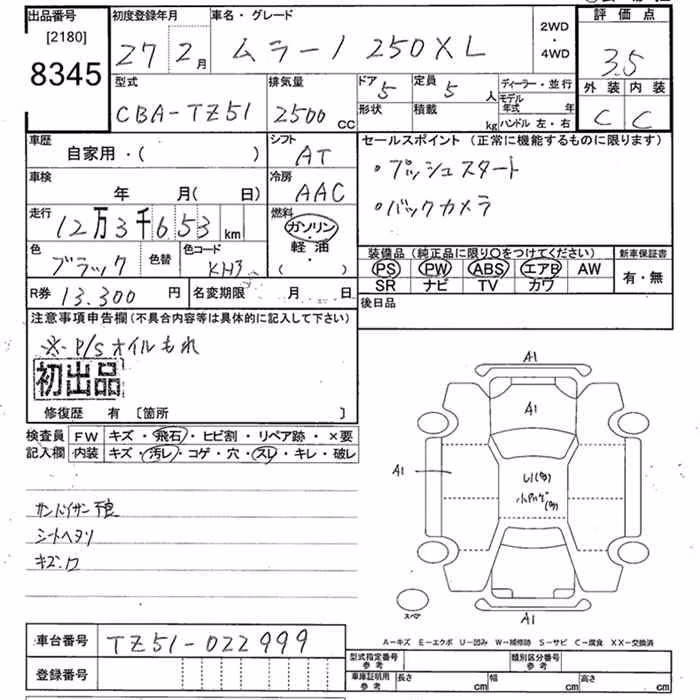 出品番号 初度登録年月 車名・グレード 2WD・4WD 評価点
[2180]
8345 27 2月 ムラーノ 250XL 3.5
型式 排気量 ドア 定員 ディーラー・並行 外装 内装
CBA-TZ51 2500 CC 5 5人 モデル年式 年 C C
形状 積載 kg ハンドル 左・右
車歴 シフト セールスポイント (正常に機能するものに限ります)
自家用・( ) AT ・プッシュスタート
車検 冷房
年 月( 日) AAC ・バックカメラ
走行 燃料
12万3千653km ガソリン
軽油
・
( )
色 色替 色コード 装備品(純正品に限り○をつけてください) 新車保証書
ブラック KH3 PS PW ABS エアB AW 有・無
SR ナビ TV カワ
R券 13.300円 名変期限 月 日 後日品
注意事項申告欄(不具合内容等は具体的に記入して下さい)
※P/Sオイルもれ
初出品
修復歴 有 [箇所 ]
検査員 FW キズ・飛石・ヒビ割・リペア跡・×要
記入欄 内装 キズ・汚レ・コゲ・穴・スレ・キレ・破レ
シートヘタリ
A1
A1
A1
A1
スペア
A-キズ E-エクボ U-凹み W-補修跡 S-サビ C-腐食 XX-交換済
車台番号 TZ51-022999
型式指定番号 参考 類別区分番号 参考
登録番号 車庫証明用 参考 長さ cm 幅 cm 高さ cm